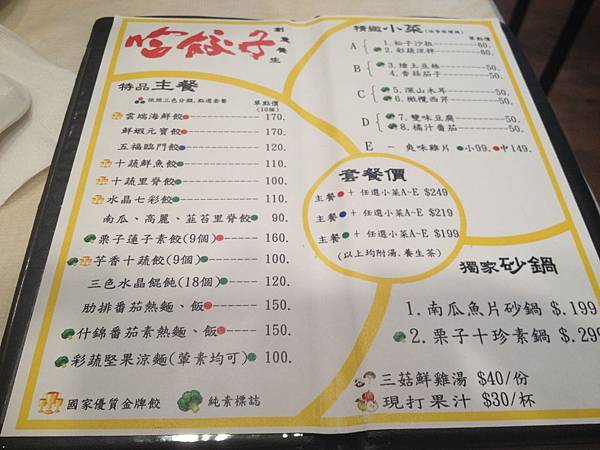 哈餃子
創意養生
特品主餐
依照三色分類,點選套餐
單點價
(10個)
雲端海鮮餃 170.
鮮蝦元寶餃 170.
五福臨門餃 120.
十蔬鮮魚餃 110.
十蔬里脊餃 100.
水晶七彩餃 110.
南瓜、高麗、韮菩里脊餃 90.
栗子蓮子素餃(9個) 160.
芋香十蔬餃(9個) 100.
三色水晶餛飩(18個) 120.
肋排番茄熱麵、飯 150.
什錦番茄素熱麵、飯 150.
彩蔬堅果涼麵(葷素均可) 100.
國家優質金牌餃
純素標誌
精緻小菜
單點價
A 1.松子沙拉 60.
2.彩蔬涼拌 60.
B 3.燴土豆絲 50.
4.香菇茄子
C 5.深山木耳
6.橄欖西芹 50.
D 7.雙味豆腐
8.橘汁番茄 50.
E - 爽味雞片 小99. 中149.
套餐價
主餐 + 任選小菜A~E $249
主餐 + 任選小菜A~E $219
主餐 + 任選小菜A~E $199
(以上均附湯.養生茶)
獨家砂鍋
1.南瓜魚片砂鍋 $.199
2.栗子十珍素鍋 $.299
三菇鮮雞湯 $40/份
現打果汁 $30/杯